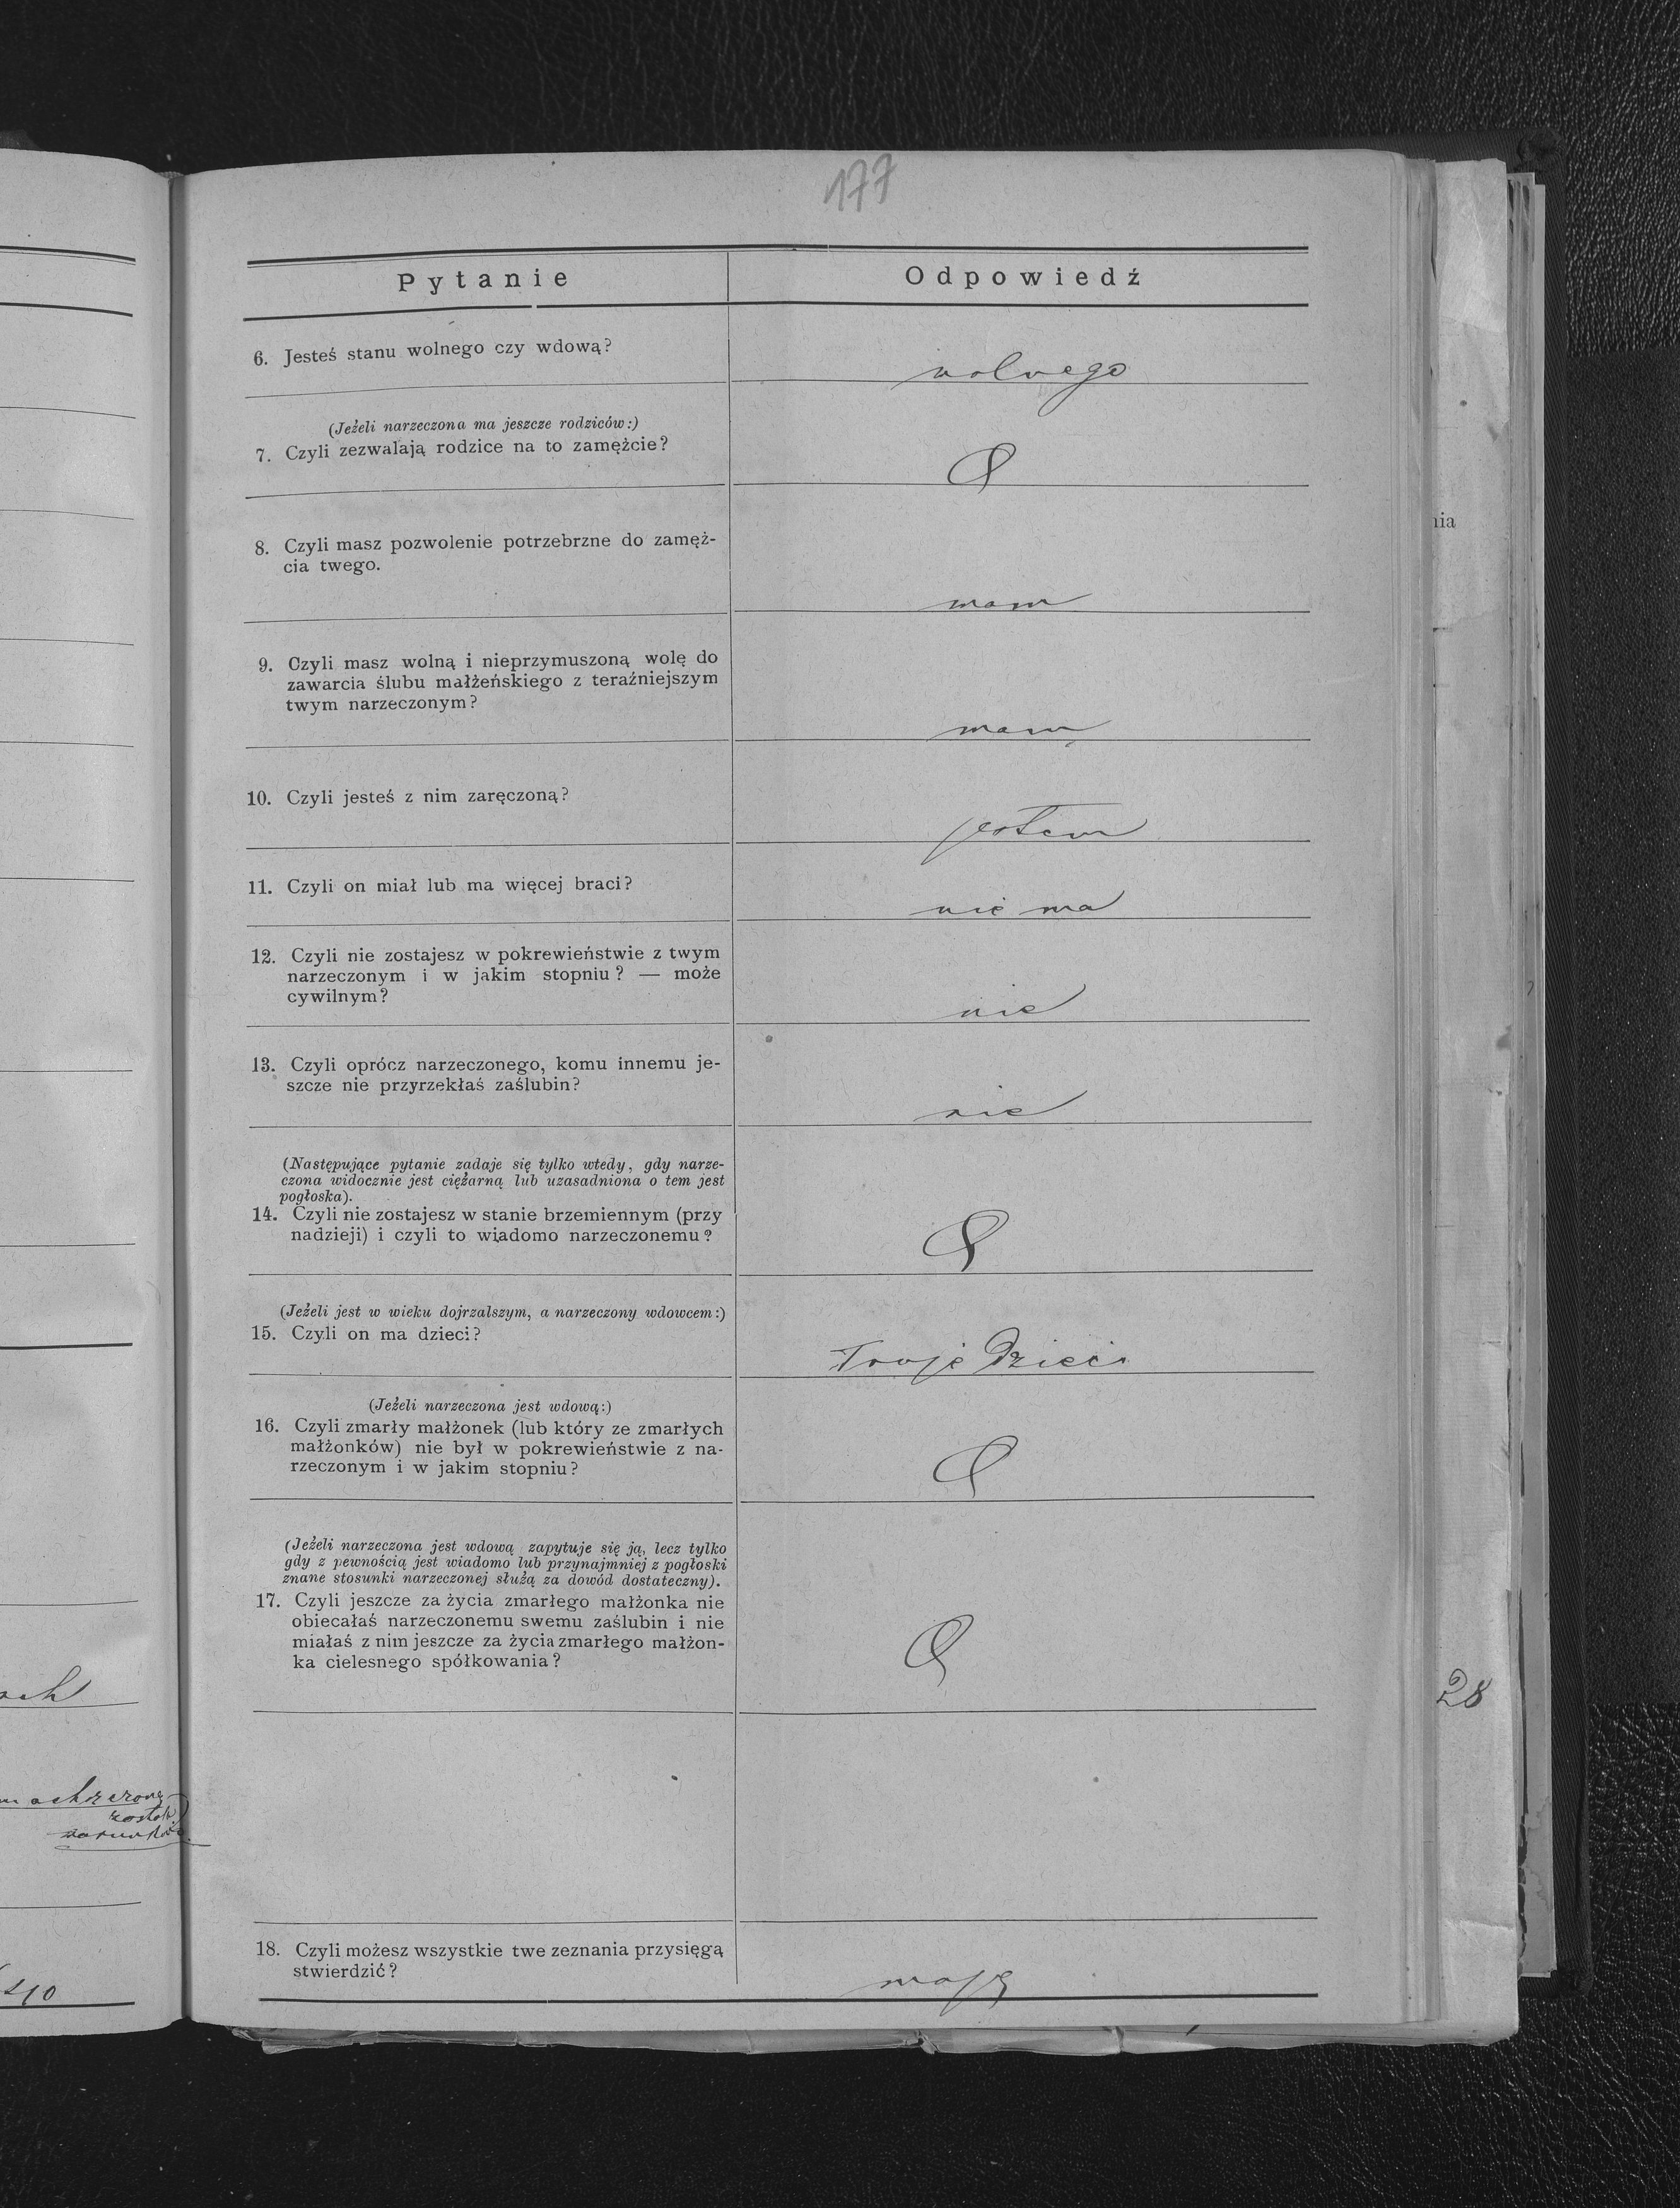 177
Pytanie
Odpowiedź
6. Jesteś stanu wolnego czy wdową?
wolnego
(Jeżeli narzeczona ma jeszcze rodziców:)
7. Czyli zezwalają rodzice na to zamężcie?
8. Czyli masz pozwolenie potrzebrzne do zamęż-
cia twego.
mam
9. Czyli masz wolną i nieprzymuszoną wolę do
zawarcia ślubu małżeńskiego z teraźniejszym
twym narzeczonym?
mam
10. Czyli jesteś z nim zaręczoną?
jestem
11. Czyli on miał lub ma więcej braci?
nie ma
12. Czyli nie zostajesz w pokrewieństwie z twym
narzeczonym i w jakim stopniu? — może
cywilnym?
nie
13. Czyli oprócz narzeczonego, komu innemu je-
szcze nie przyrzekłaś zaślubin?
nie
(Następujące pytanie zadaje się tylko wtedy, gdy narze-
czona widocznie jest ciężarną lub uzasadniona o tem jest
pogłoska).
14. Czyli nie zostajesz w stanie brzemiennym (przy
nadzieji) i czyli to wiadomo narzeczonemu?
(Jeżeli jest w wieku dojrzalszym, a narzeczony wdowcem:)
15. Czyli on ma dzieci?
Troje dzieci
(Jeżeli narzeczona jest wdową:)
16. Czyli zmarły małżonek (lub który ze zmarłych
małżonków) nie był w pokrewieństwie z na-
rzeczonym i w jakim stopniu?
(Jeżeli narzeczona jest wdową zapytuje się ją, lecz tylko
gdy z pewnością jest wiadomo lub przynajmniej z pogłoski
znane stosunki narzeczonej służą za dowód dostateczny).
17. Czyli jeszcze za życia zmarłego małżonka nie
obiecałaś narzeczonemu swemu zaślubin i nie
miałaś z nim jeszcze za życia zmarłego małżon-
ka cielesnego spółkowania?
18. Czyli możesz wszystkie twe zeznania przysięgą
stwierdzić?
mogę
nia
28